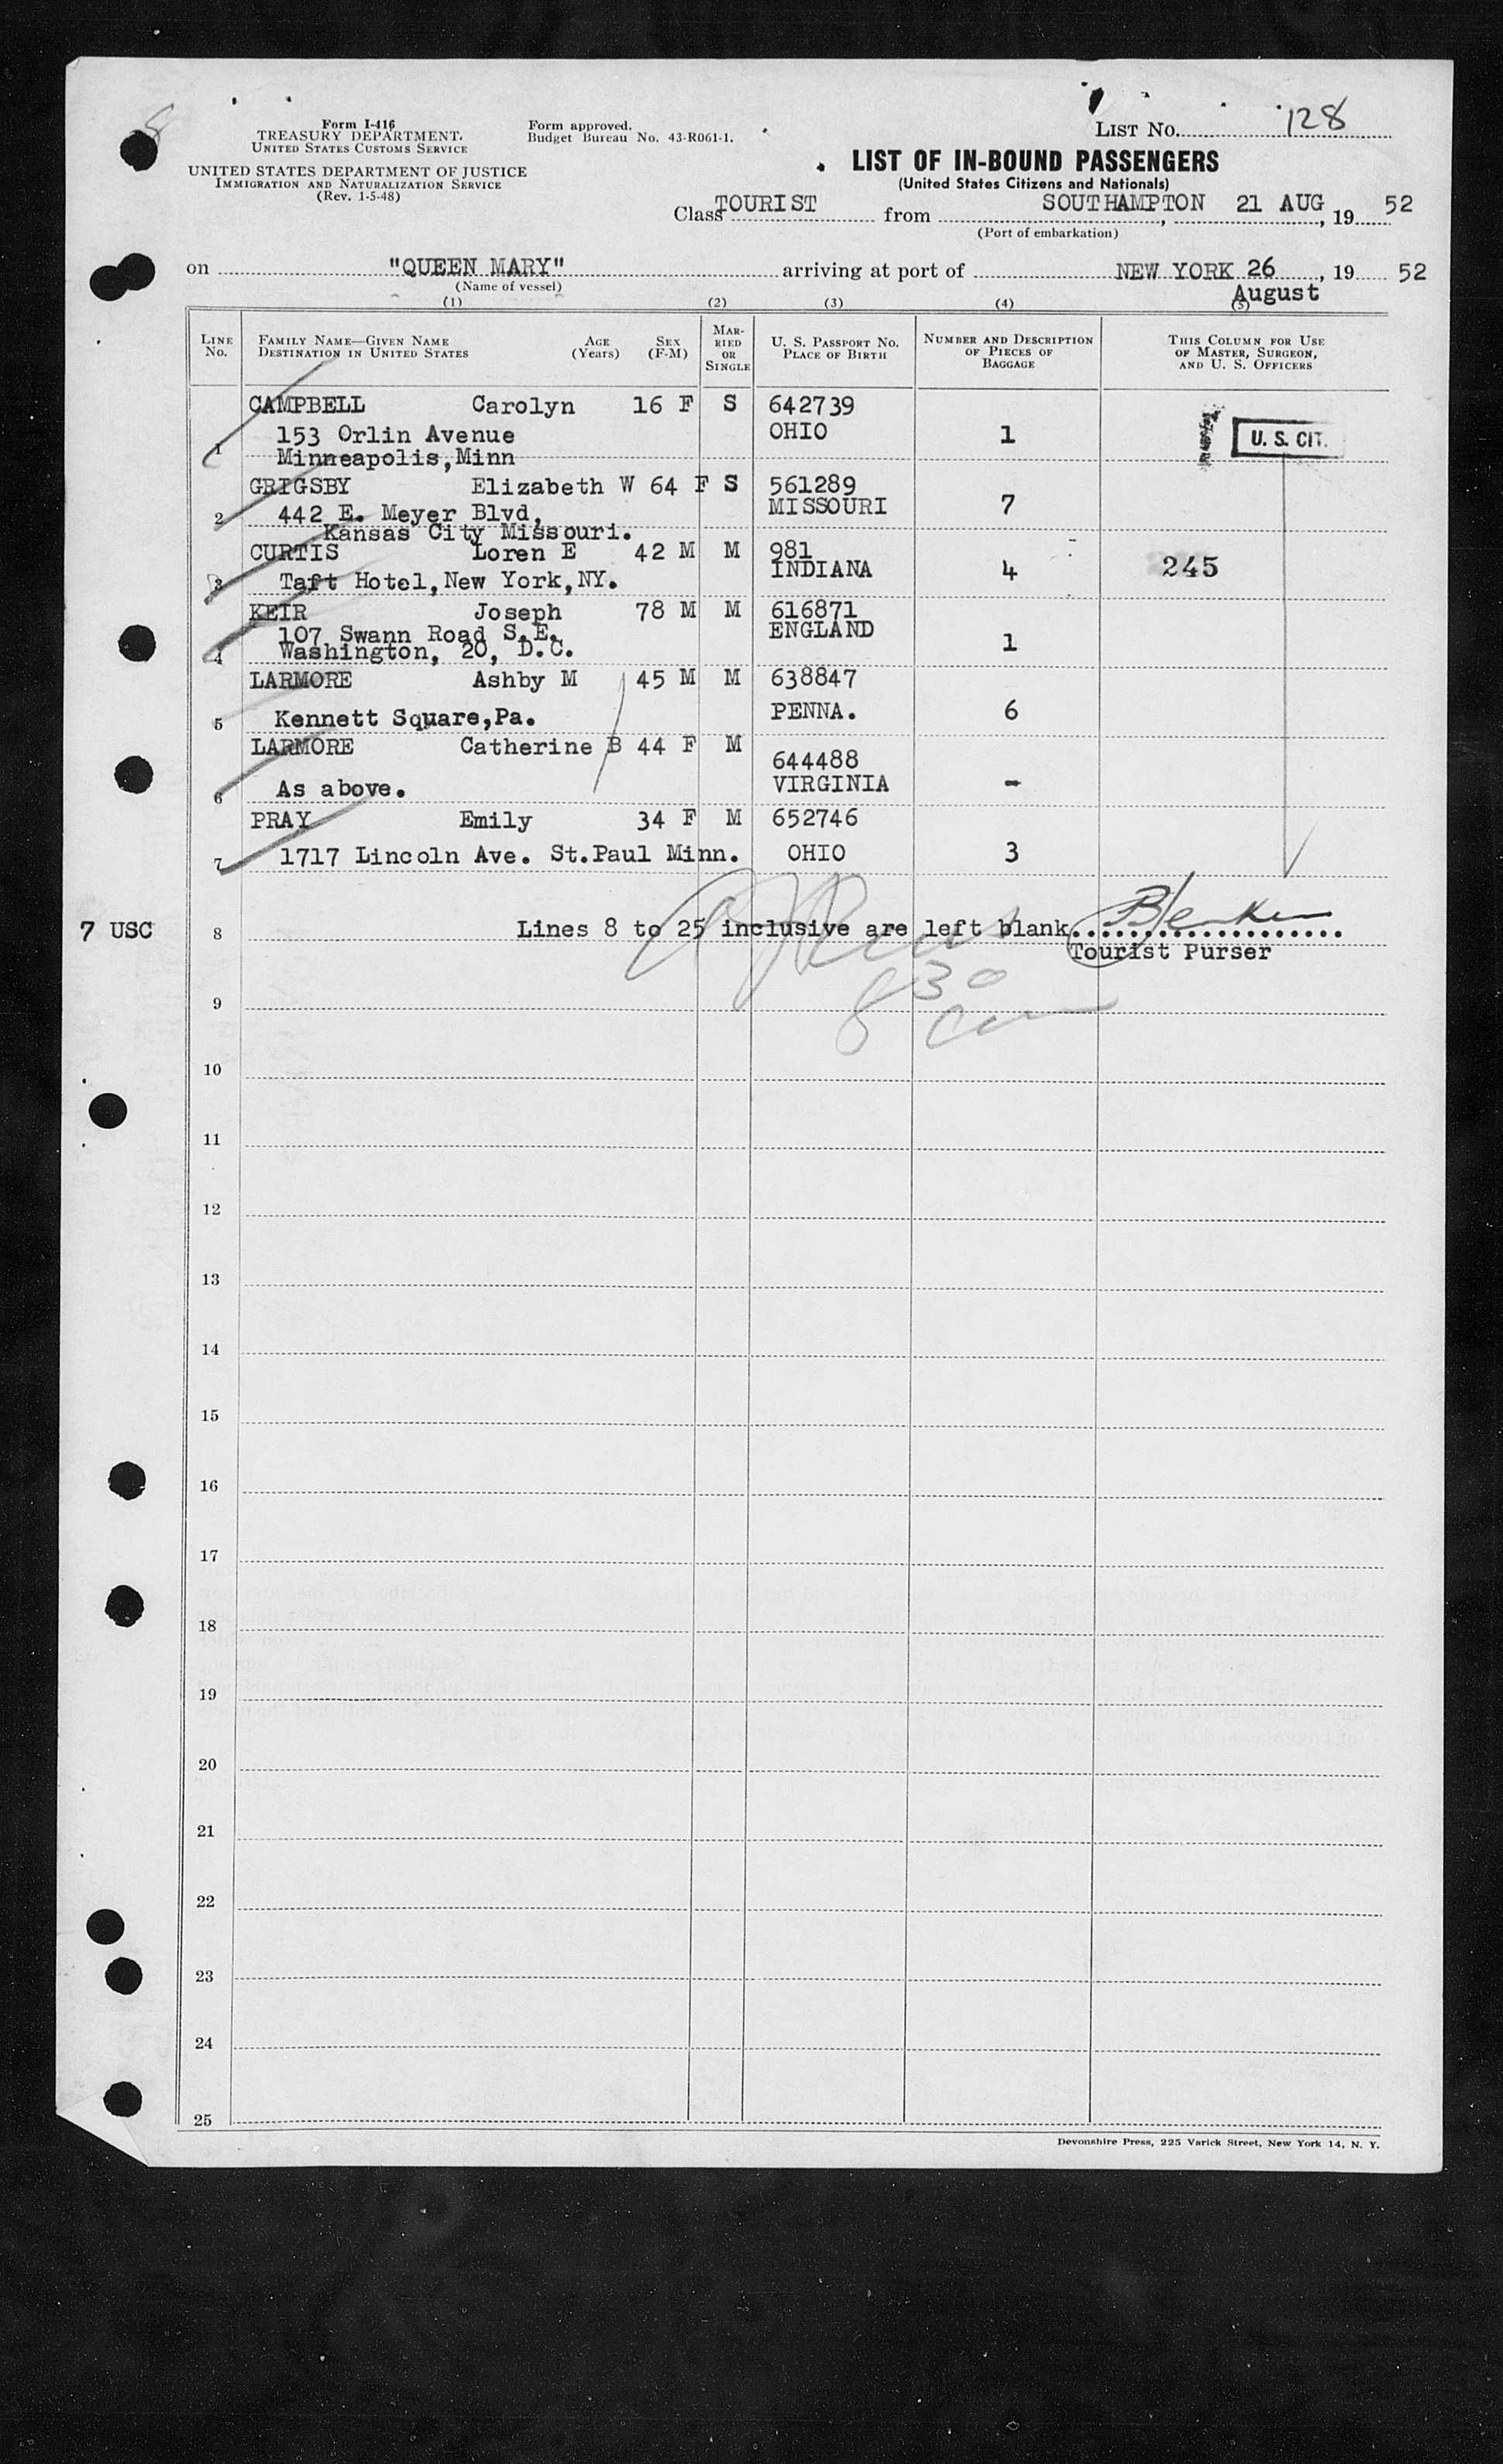 Form I-416
TREASURY DEPARTMENT
UNITED STATES CUSTOMS SERVICE
UNITED STATES DEPARTMENT OF JUSTICE
IMMIGRATION AND NATURALIZATION SERVICE
(Rev. 1-5-48)
Form approved.
Budget Bureau No. 43-R061-1.
LIST NO. 128
LIST OF IN-BOUND PASSENGERS
(United States Citizens and Nationals)
Class TOURIST from SOUTHAMPTON 21 AUG, 19 52
(Port of embarkation)
on "QUEEN MARY" arriving at port of NEW YORK 26, 19 52
(Name of vessel) August
(1) (2) (3) (4) (5)
LINE No. FAMILY NAME—GIVEN NAME DESTINATION IN UNITED STATES AGE (Years) SEX (F-M) MARRIED OR SINGLE U. S. PASSPORT NO. PLACE OF BIRTH NUMBER AND DESCRIPTION OF PIECES OF BAGGAGE THIS COLUMN FOR USE OF MASTER, SURGEON, AND U. S. OFFICERS
CAMPBELL Carolyn 16 F S 642739
1 153 Orlin Avenue OHIO 1 U. S. CIT.
Minneapolis,Minn
GRIGSBY Elizabeth W 64 F S 561289
2 442 E. Meyer Blvd, MISSOURI 7
Kansas City Missouri.
CURTIS Loren E 42 M M 981
3 Taft Hotel,New York,NY. INDIANA 4 245
KEIR Joseph 78 M M 616871
107 Swann Road S.E. ENGLAND
4 Washington, 20, D.C. 1
LARMORE Ashby M 45 M M 638847
5 Kennett Square,Pa. PENNA. 6
LARMORE Catherine B 44 F M 644488
6 As above. VIRGINIA -
PRAY Emily 34 F M 652746
7 1717 Lincoln Ave. St.Paul Minn. OHIO 3
7 USC 8 Lines 8 to 25 inclusive are left blank
Tourist Purser
830
9
10
11
12
13
14
15
16
17
18
19
20
21
22
23
24
25
Devonshire Press, 225 Varick Street, New York 14, N. Y.